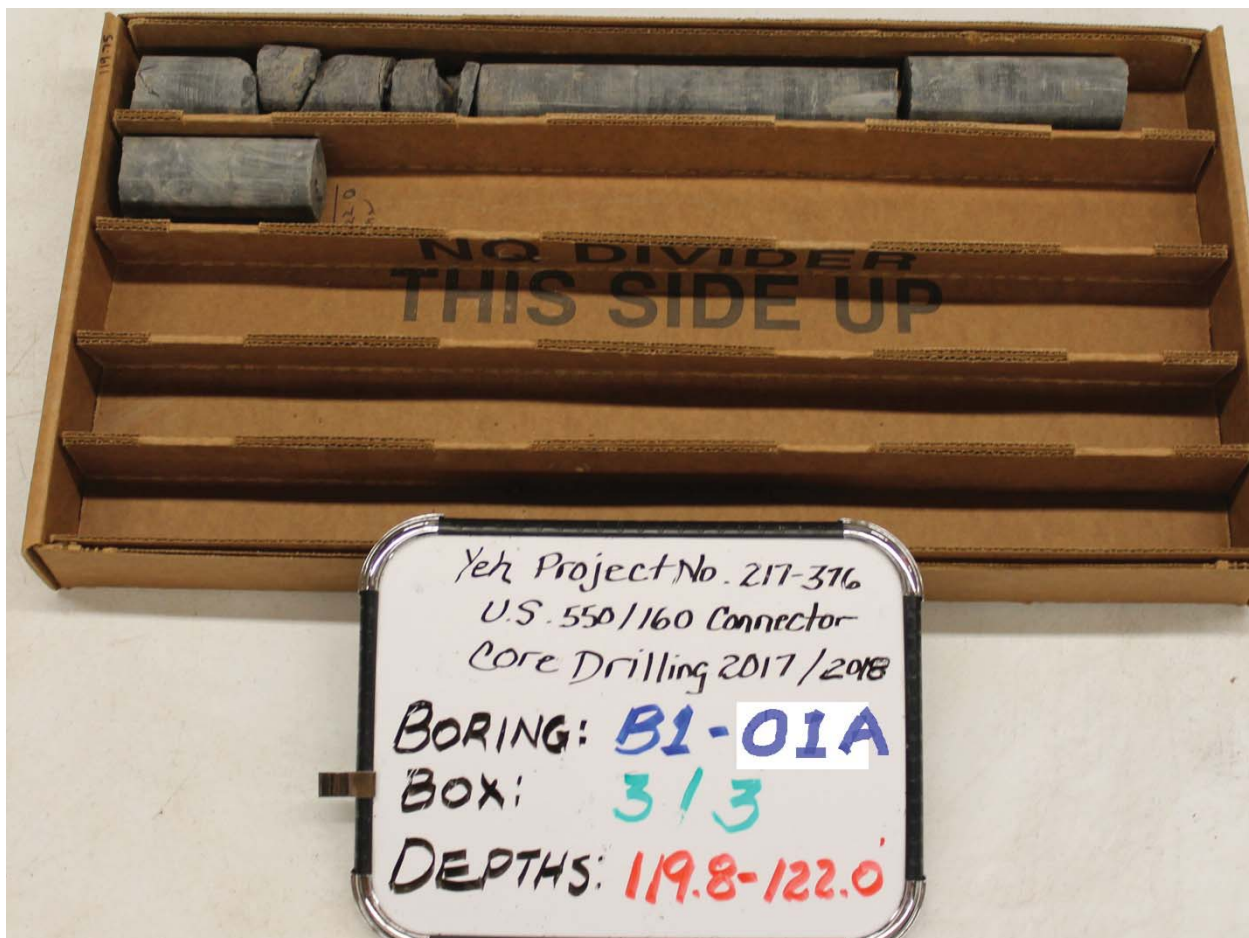 119.75
22.0
NQ DIVIDER
THIS SIDE UP
Yeh Project No. 217-376
U.S. 550/160 Connector
Core Drilling 2017/2018
BORING: B1-01A
BOX: 3/3
DEPTHS: 119.8-122.0'